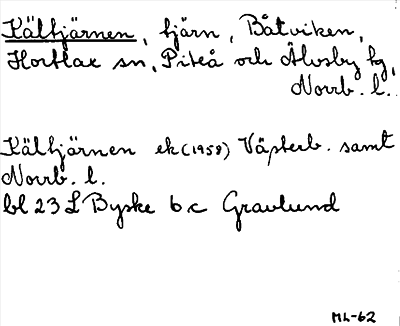 Kältjärnen, tjärn, Båtviken,
Hortlax sn, Piteå och Älvsby tg,
Norrb. l.
Kältjärnen ek (1958) Västerb. samt
Norrb. l.
bl 23 L Byske 6c Gravlund
ML-62